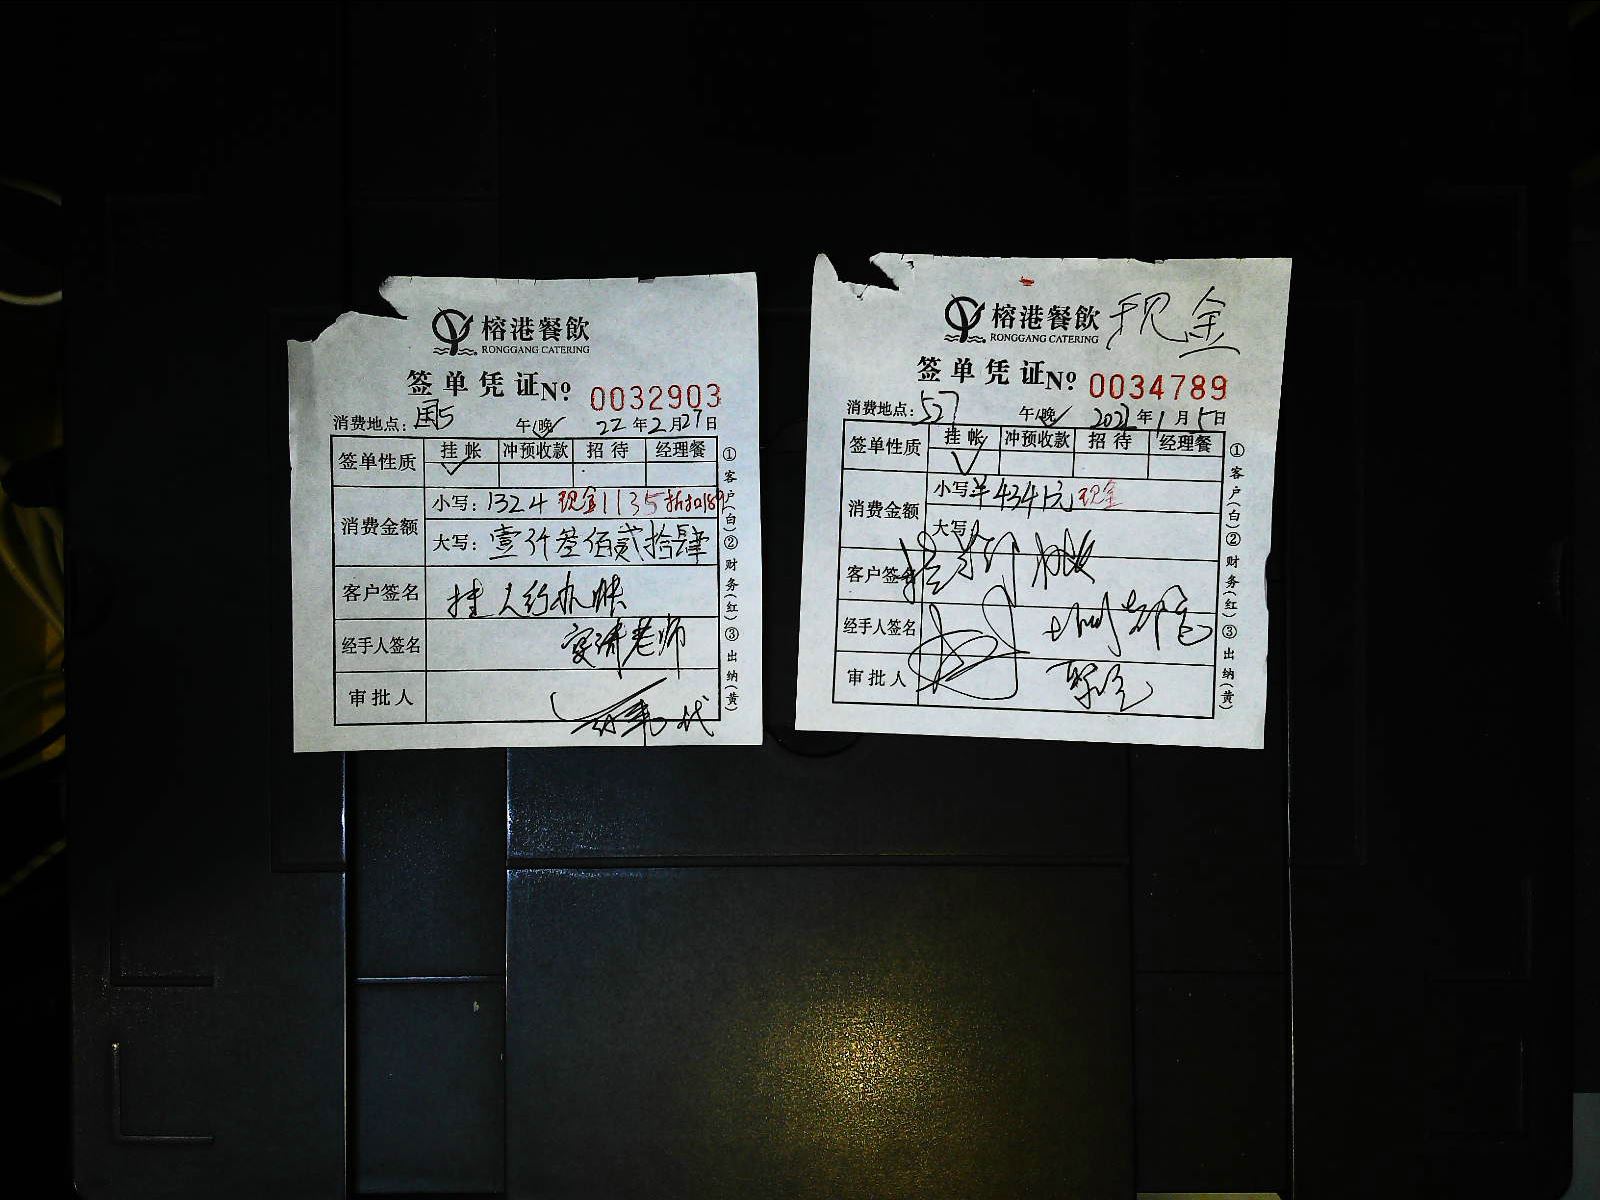 榕港餐飲
RONGGANG CATERING
签单凭证 Nº 0032903
消费地点：国5 午/晚 22年2月27日
签单性质 挂帐 冲预收款 招待 经理餐
消费金额 小写：1324 现金1135折扣189
大写：壹仟叁佰贰拾肆
客户签名 挂人行办帐
经手人签名 老师
审批人 代
①客户(白)②财务(红)③出纳(黄)
榕港餐飲 现金
RONGGANG CATERING
签单凭证 Nº 0034789
消费地点：527 午/晚 2022年1月5日
签单性质 挂帐 冲预收款 招待 经理餐
消费金额 小写 434元 现金
大写
客户签名
经手人签名
审批人
①客户(白)②财务(红)③出纳(黄)